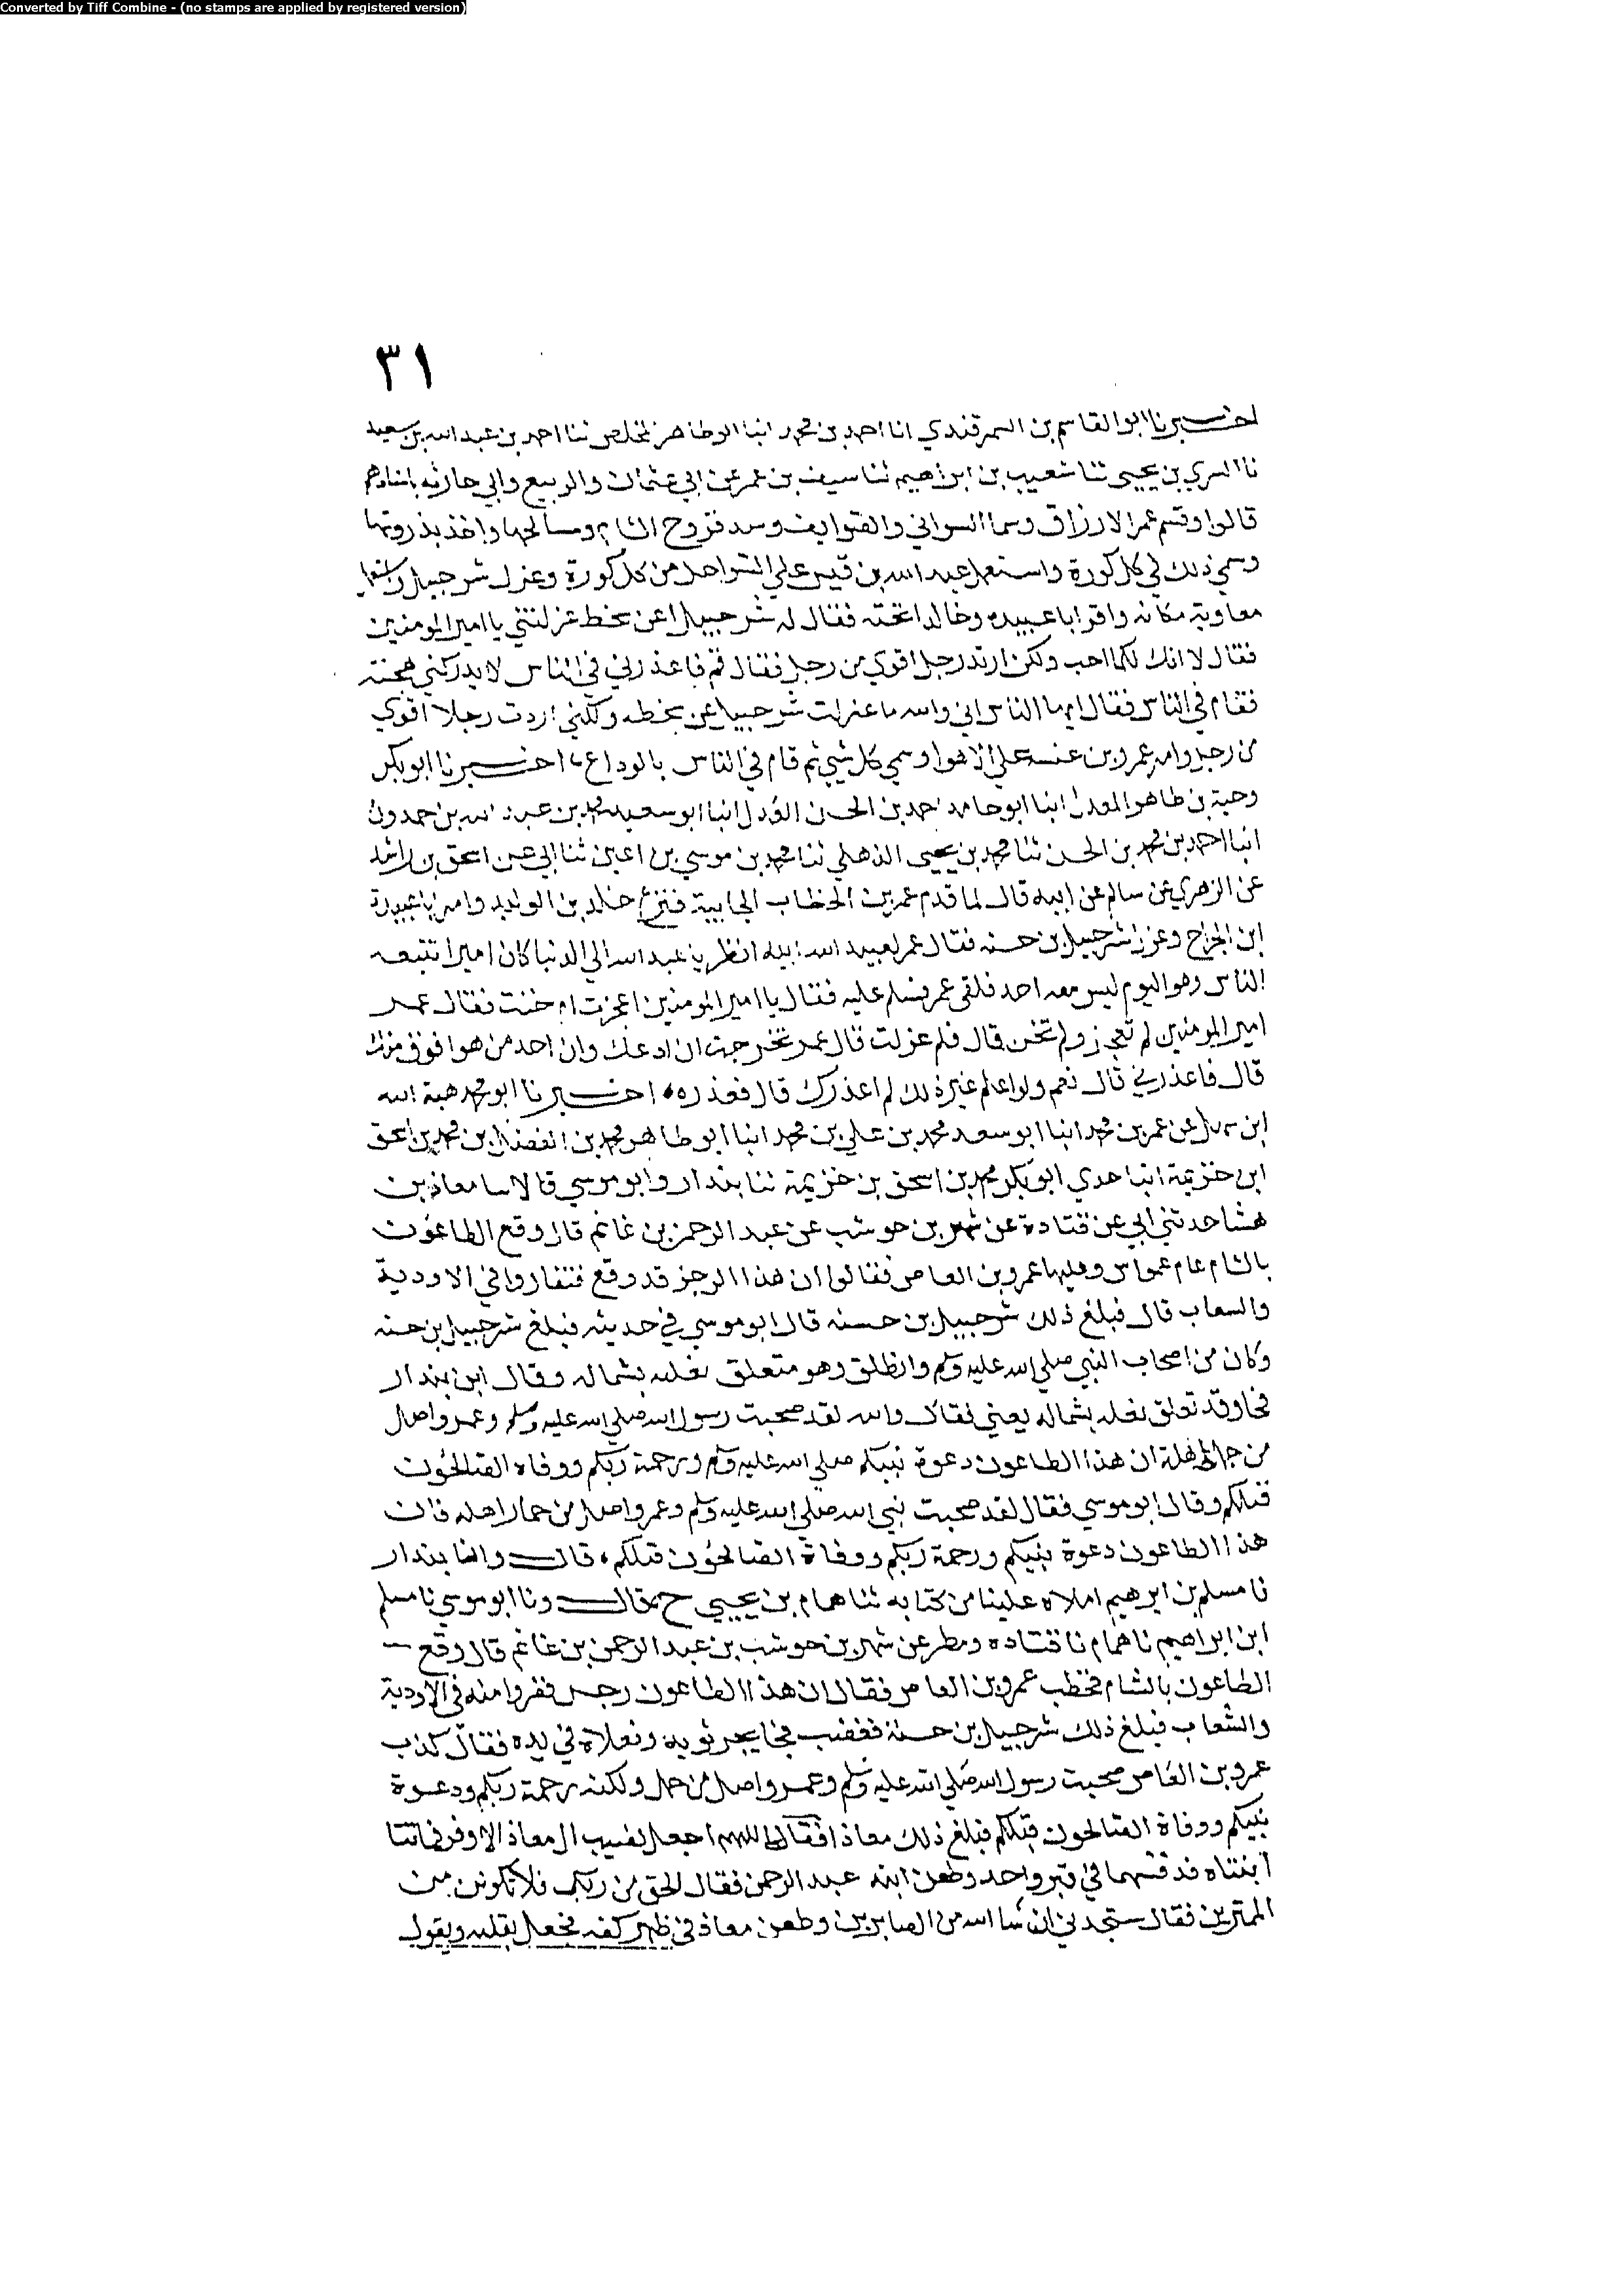 Converted by Tiff Combine - (no stamps are applied by registered version)
٣١
اخبرنا ابو القاسم بن السمرقندي انا احمد بن محمد انبا ابو طاهر مخلص ثنا احمد بن عبد الله بن سعيد
نا السري بن يحيى ثنا شعيب بن ابراهيم ثنا سيف بن عمر عن ابي عثمان والربيع وابي حارثه باسنادهم
قالوا وقسم عمر الارزاق وسما السواني والقوايف وسد فروج الشام ومسالحها واخذ بذروتها
وسمي ذلك في كل كورة واستعمل عبد الله بن قيس علي السواحل من كل كورة وعزل شرحبيل واستعمل
معاوية مكانه واقر ابا عبيده وخالدا تحته فقال له شرحبيل اعن سخط عزلتني يا امير المومنين
فقال لا انك لكما احب ولكن اريد رجل اقوي من رجل فقال قم فاعذرني في الناس لا يدركني هجنة
فقام في الناس فقال ايها الناس اني والله ما عزلت شرحبيل عن سخطه ولكني اردت رجلا اقوي
من رجل وامر عمرو بن عنسه علي الاهوا وسمي كل شي ثم قام في الناس بالوداع، اخبرنا ابو بكر
وجيه بن طاهر المعدل انبا ابو حامد احمد بن الحسن العدل انبا ابو سعيد محمد بن عبد الله بن حمدون
انبا احمد بن محمد بن الحسن ثنا محمد بن يحيى الذهلي ثنا محمد بن موسي بن اعين ثنا ابي عن اسحق بن راشد
عن الزهري عن سالم عن ابيه قال لما قدم عمر بن الخطاب الجابية فنزع خالد بن الوليد وامر ابا عبيدة
ابن الجراح وعزل شرحبيل بن حسنه فقال عمر لعبد الله ابنه انظر يا عبد الله الي الدنيا كان اميرا تتبعه
الناس وهو اليوم ليس معه احد فلقي عمر فسلم عليه فقال يا امير المومنين اعجزت ام خنت فقال عمر
امير المومنين لم تعجز ولم تخن قال فلم عزلت قال عمر تحرجت ان ادعك وان احد من هو افوق منك
قال فاعذرني قال نعم ولو اعلم غير ذلك لم اعذرك قال فعذره، اخبرنا ابو محمد هبة الله
ابن سهل عن عمر بن محمد انبا ابو سعد محمد بن علي بن محمد انبا ابو طاهر محمد بن الفضل بن محمد بن اسحق
ابن خزيمة انبا جدي ابو بكر محمد بن اسحق بن خزيمة ثنا بندار وابو موسي قالا سا معاذ بن
هشا حدثني ابي عن قتادة عن شهر بن حوشب عن عبد الرحمن بن غانم قال وقع الطاعون
بالشام عام عمواس وعليها عمرو بن العاص فقالوا ان هذا الرجز قد وقع فتفاروا في الاودية
والسعاب قال فبلغ ذلك شرحبيل بن حسنه قال ابو موسي في حديثه فبلغ شرحبيل بن حسنه
وكان من اصحاب النبي صلي الله عليه وسلم وانطلق وهو متعلق نعليه بشماله وقال ابن بندار
فجا وقد تعلق نعله بشماله يعني فقال والله لقد صحبت رسول الله صلي الله عليه وسلم وعمرو اضال
من جمل اهله ان هذا الطاعون دعوة نبيكم صلي الله عليه وسلم ورحمة ربكم ووفاه الصالحون
قبلكم وقال ابو موسي فقال لقد صحبت نبي الله صلي الله عليه وسلم وعمرو اضل من حمار اهله فان
هذا الطاعون دعوة نبيكم ورحمة ربكم ووفاة الصالحون قبلكم، قال وانا بندار
نا مسلم بن ابرهيم املاه علينا من كتابه ثنا همام بن يحيى ح قال ونا ابو موسي نا مسلم
ابن ابراهيم نا همام نا قتاده ومطر عن شهر بن حوشب بن عبد الرحمن بن غانم قال وقع
الطاعون بالشام فخطب عمرو بن العاص فقال ان هذا الطاعون رجس ففروا منه في الاودية
والشعاب فبلغ ذلك شرحبيل بن حسنة فغضب فجا يجر ثوبه ونعلاه في يده فقال كذب
عمرو بن العاص صحبت رسول الله صلي الله عليه وسلم وعمرو اضل من جمل ولكنه رحمة ربكم ودعوة
نبيكم ووفاة الصالحون قبلكم فبلغ ذلك معاذا فقال اللهم اجعل نصيب ال معاذ الاوفر فماتتا
ابنتاه فدفنهما في قبر واحد وطعن ابنه عبد الرحمن فقال الحق من ربك فلا تكونن من
الممترين فقال ستجدني ان شا الله من الصابرين وطعن معاذ في ظهر كفه فجعل يقلبه ويقول